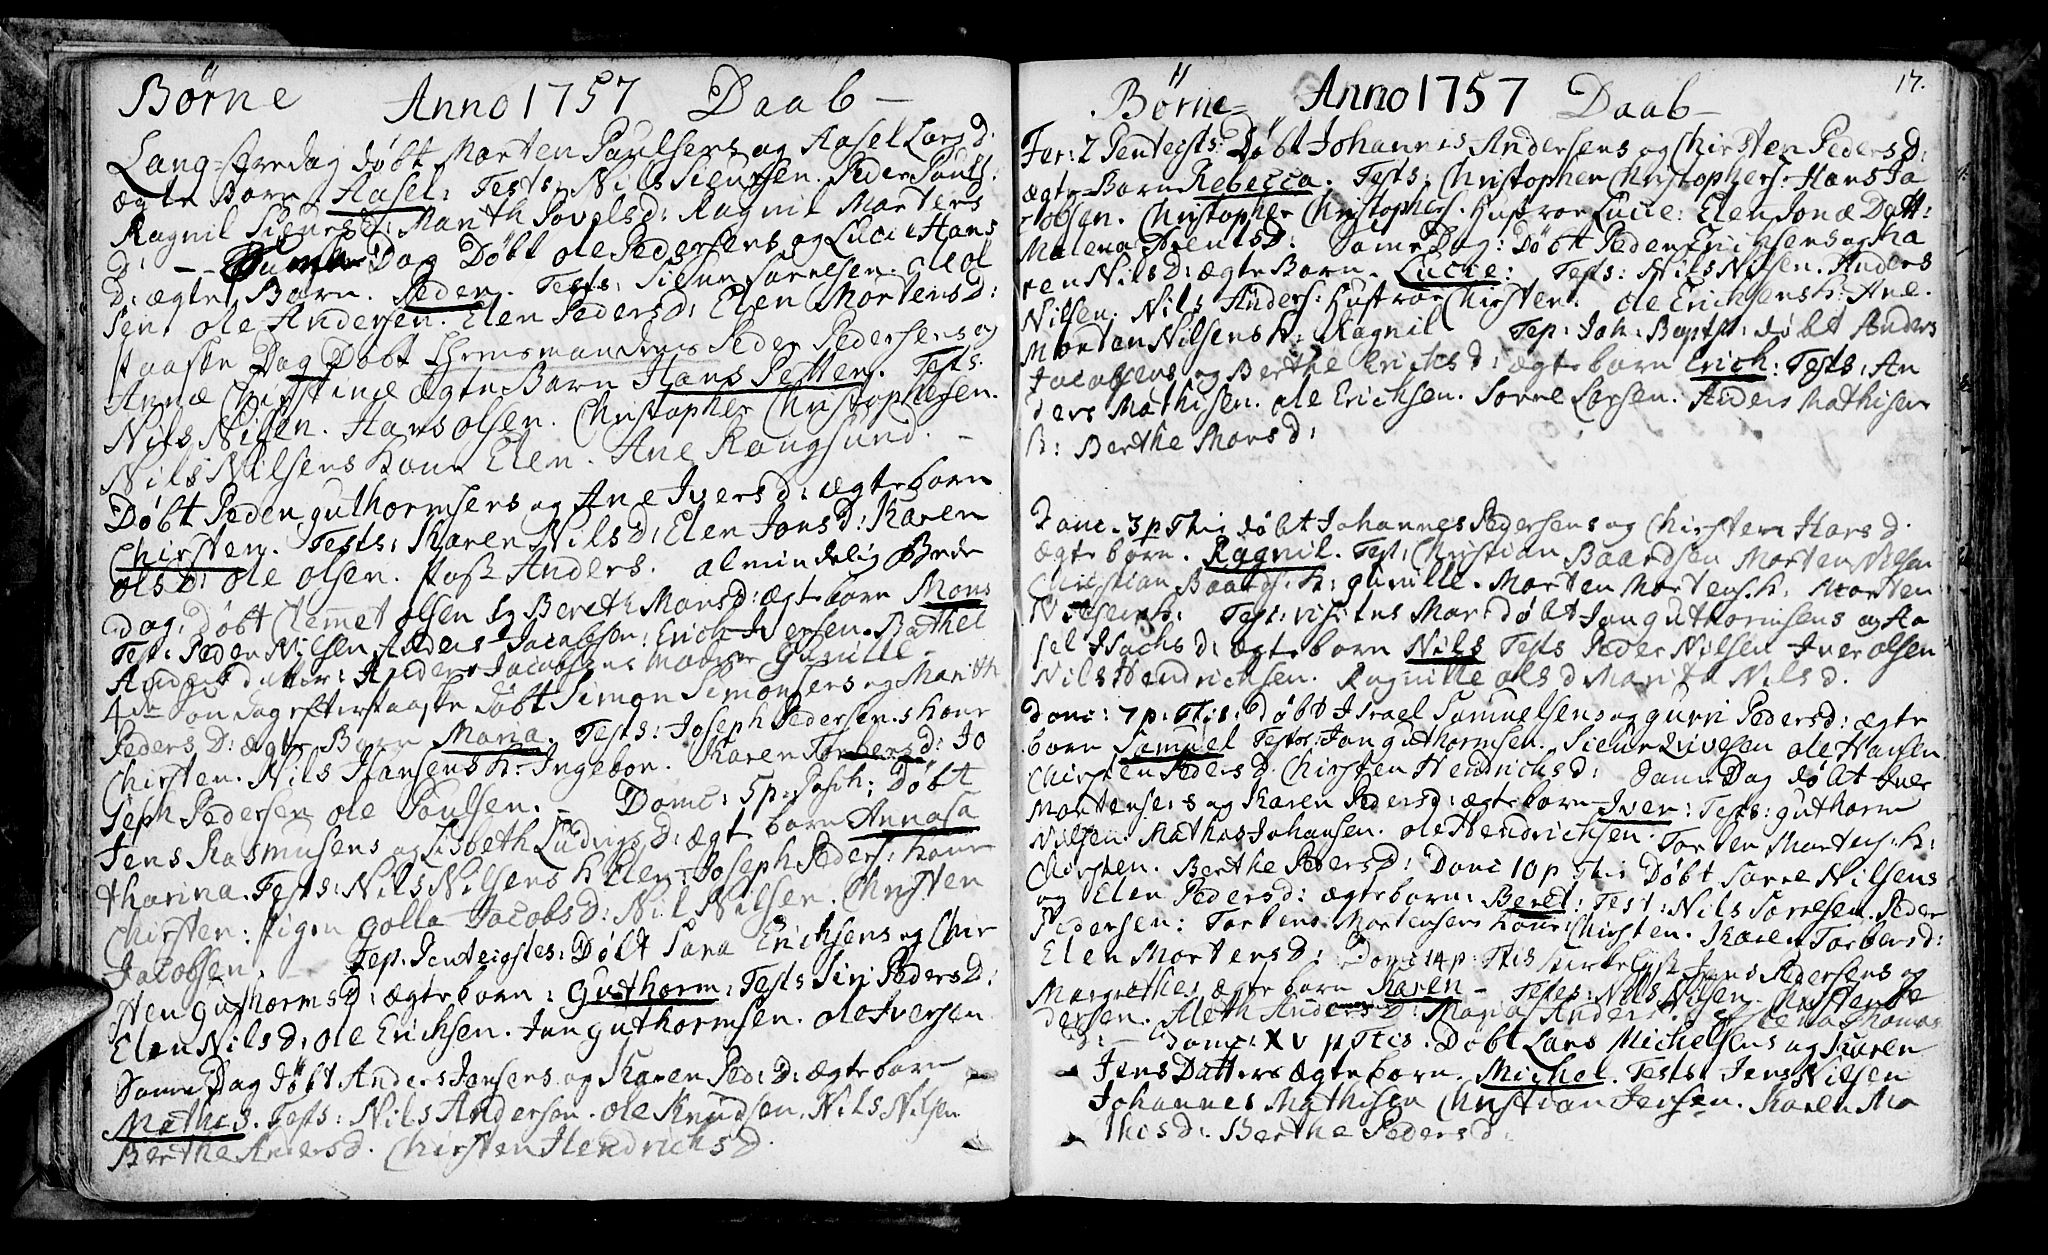 Børne Anno 1757 Daab
Lang-fredag døbt Morten Paulsens og Aasel Lars D:
ægte Barn Aasel: Tests: Nils Siensen. Peder Pouls:
Ragnil Siensd: Marith Povelsd: Ragnil Mortens
D: - Samme Dag Døbt Ole Pedersens og Lucie Hans
D: ægte Barn. Peder. Tests: Sienn Sørresen. Ole Ol
sen. Ole Andersen. Elen Pedersd: Elen Mortens D:
Paaske Dag Døbt Peder Pedersens og
Annæ Christinæ ægte Barn Hans Petter. Tests:
Nils Nilsen. Hans Olsen. Christopher Christophersen.
Nils Nilsens Kone Elen. Ane Rangsund. -
Døbt Peder Guthormsens og Ane Ivers d: ægte born
Chirsten. Tests: Karen Nils d: Elen Jons d: Karen
Ols D: Ole Olsen. Anders. almindelig Bede
dag: Døbt Clemmet Olsen og Bereth Mons d: ægte born Mons
Test: Peder Nilsen Anders Jacobsen: Erich Iversen. Bathel
Anders datter: Anders Jacobsens Gunille -
4de Søndag efter paaske døbt Simon Simonsens og Marith
Peders D: ægte Barn Maria. Tests: Joseph Pedersens Kone
Chirsten. Nils Hansens K: Ingebor. Karen Torbersd: Jo
seph Pedersen Ole Poulsen. - Domc: 5 p: Pasch: Døbt
Jens Rasmusens og Lisbeth Ludvigs D: ægte born Anna Ca
tharina. Tests: Nils Nilsens K Elen - Joseph Peders: Kone
Chirsten: Pigen Golla Jacobs D: Nil Nilsen. Christen
Jacobsen. - Fest. Pentecostes: Døbt Erichsens og Chir
sten Guthorms D: ægte born: Guthorm: Tests Siri Peders D:
Elen Nils d: Ole Erichsen. Jan Guthormsen. Ole Iversen
Same Dag døbt Anders Jensens og Karen Ped: D: ægte born
Mathis. Tests: Nils Andersen. Ole Knudsen. Nils Nilsen
Berthe Anders d. Chirsten Hendrichs d.
Børne Anno 1757 Daab 17.
Fer: 2 Pentecsts: Døbt Johannes Andersens og Chirsten Peders D:
ægte Barn Rebecca. Tests: Christopher Christophers: Hans Ja
cobsen. Christopher Christophers. Hustroe Lucie: Elen Jonæ Datt:
Malena D: Same Dag: Døbt Peder Erichsens og Ka
ren Nils D: ægte Barn. Lucie: Tests: Nils Nilsen. Anders
Nilsen. Nils Anders: Hustroe Chirsten. Ole Erichsens K: Ane.
Morten Nilsens K: Ragnil Fep: Joh: Baptst: døbt Anders
Jacobsens og Berthe Erichs d: ægte born Erich: Tests: An
ders Mathisen. Ole Erichsen. Sørre Larsen. Anders Mathisen
K: Berthe Mons d:
Domc. 3 p Tris døbt Johannes Pedersens og Chirsten Hans d.
ægte born. Ragnil. Test: Christian Baardsen Morten Nilsen
Christian Baards: K: Gunille. Morten Mortens. K. Morten
Nilsens K: Fest: visit:ns Mar døbt Jan Guthormsens og Aa
sel Isachs d: ægte born Nils Tests Peder Nilsen Iver Olsen
Nils Hendrichsen. Ragnille Ols d Marita Nils d.
Domc: 7 p: Ttis: døbt Israel Samuelsens og Guri Peders d: ægte
born Samuel Testes: Jan Guthormsen. Siene Ole Hansen
Chirsten Peders D. Chirsten Hendrichs d: Same Dag døbt Iver
Mortensens og Karen Peders d: ægte born Iver: Tests: Guthorm
Nilsen. Mathias Johansen. Ole Hendrichsen. Torben Martens: K:
Chirsten. Berthe Peders d: Domc 10 p Ttis Døbt Sørre Nilsens
og Elen Peders d: ægte born: Beret: Test: Nils Sørresen. Peder
Pedersen: Torbens Mortensens Kone: Chirsten. Karen Torbers d:
Elen Mortens d: Domc 14 p: Ttis Jens Pedersens og
Margrethes ægte born Karen - Tests: Nils Nilsen. Christen Pe
dersen. Aleth Anders D: Maria Anders Lena Thomas
D: - Domc: XV p Ttis: Døbt Lars Michelsens og Karen
Jens Datters ægte born. Michel. Tests: Jens Nilsen
Johannes Mathisen Christian Jensen. Karen Ma
this d: Berthe Peders d: